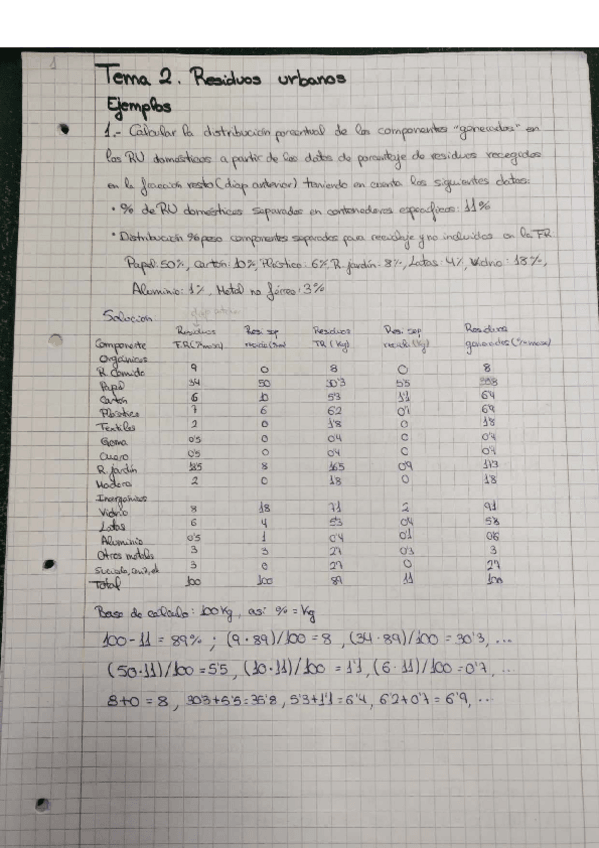 Tema 2. Residuos urbanos
Ejemplos
1.- Calcular la distribución porcentual de los componentes "generados" en
los RU domésticos a partir de los datos de porcentaje de residuos recogidos
en la fracción resto (diap anterior) teniendo en cuenta los siguientes datos:
• % de RU domésticos separados en contenedores específicos: 11%
• Distribución % peso componentes separados para reciclaje y no incluidos en la FR
Papel: 50%, Cartón: 10%, Plástico: 6%, R. jardín: 8%, Latas: 4%, Vidrio: 18%,
Aluminio: 1%, Metal no férreo: 3%
Solución
Componente Residuos FR (% masa) Resi. sep Residuos TR (Kg) Resi. sep (Kg) Residuos generados (% masa)
Orgánicos
R. Comida 9 0 8 0 8
Papel 34 50 30'3 5'5
Cartón 6 10 5'3 1'1 6'4
Plástico 7 6 6'2 0'7 6'9
Textiles 2 0 1'8 0 1'8
Goma 0'5 0 0'4 0 0'4
Cuero 0'5 0 0'4 0 0'4
R. jardín 18'5 8 16'5 0'9
Madera 2 0 1'8 0 1'8
Inorgánicos
Vidrio 8 18 7'1 2 9'1
Latas 6 4 5'3 0'4 5'8
Aluminio 0'5 1 0'4 0'1
Otros metales 3 3 2'7 0'3 3
3 0 2'7 0 2'7
Total 100 100 89 11 100
Base de cálculo: 100 Kg, así % = Kg
100 - 11 = 89% ; (9 · 89)/100 = 8 , (34 · 89)/100 = 30'3, ...
(50 · 11)/100 = 5'5, (10 · 11)/100 = 1'1, (6 · 11)/100 = 0'7, ...
8+0 = 8 , 30'3+5'5 = 35'8, 5'3+1'1 = 6'4, 6'2+0'7 = 6'9, ...